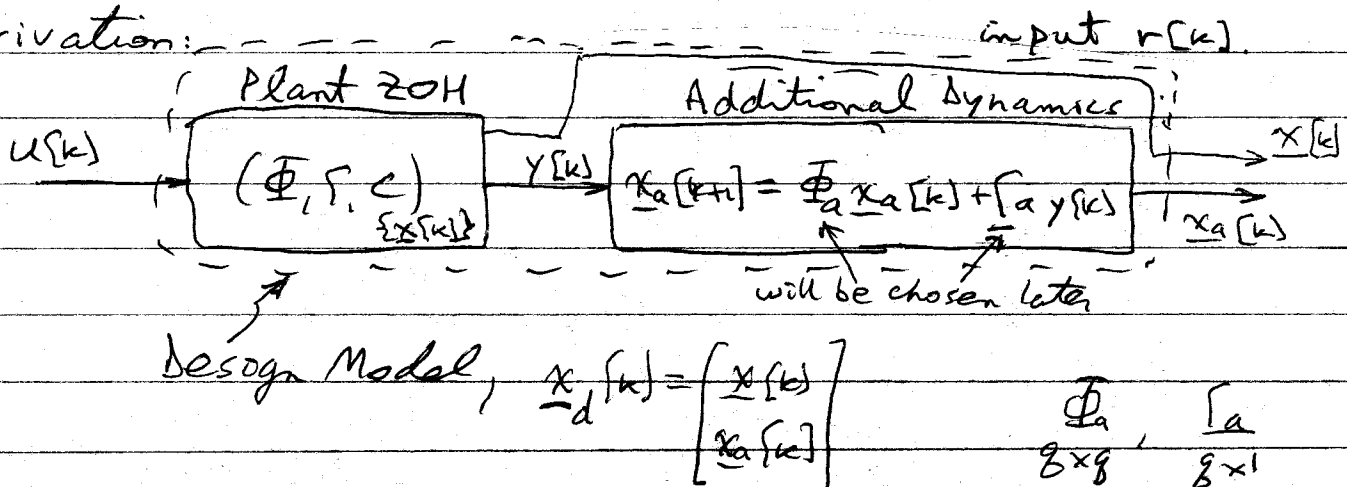 rivation: input r[k].
Plant ZOH Additional Dynamics
u[k] (Φ, Γ, C) {x[k]} y[k] x_a[k+1] = Φ_a x_a[k] + Γ_a y[k] x[k]
x_a[k]
will be chosen later
Desogn Model, x_d[k] = [x[k]
x_a[k]] Φ_a, Γ_a
q×q q×1